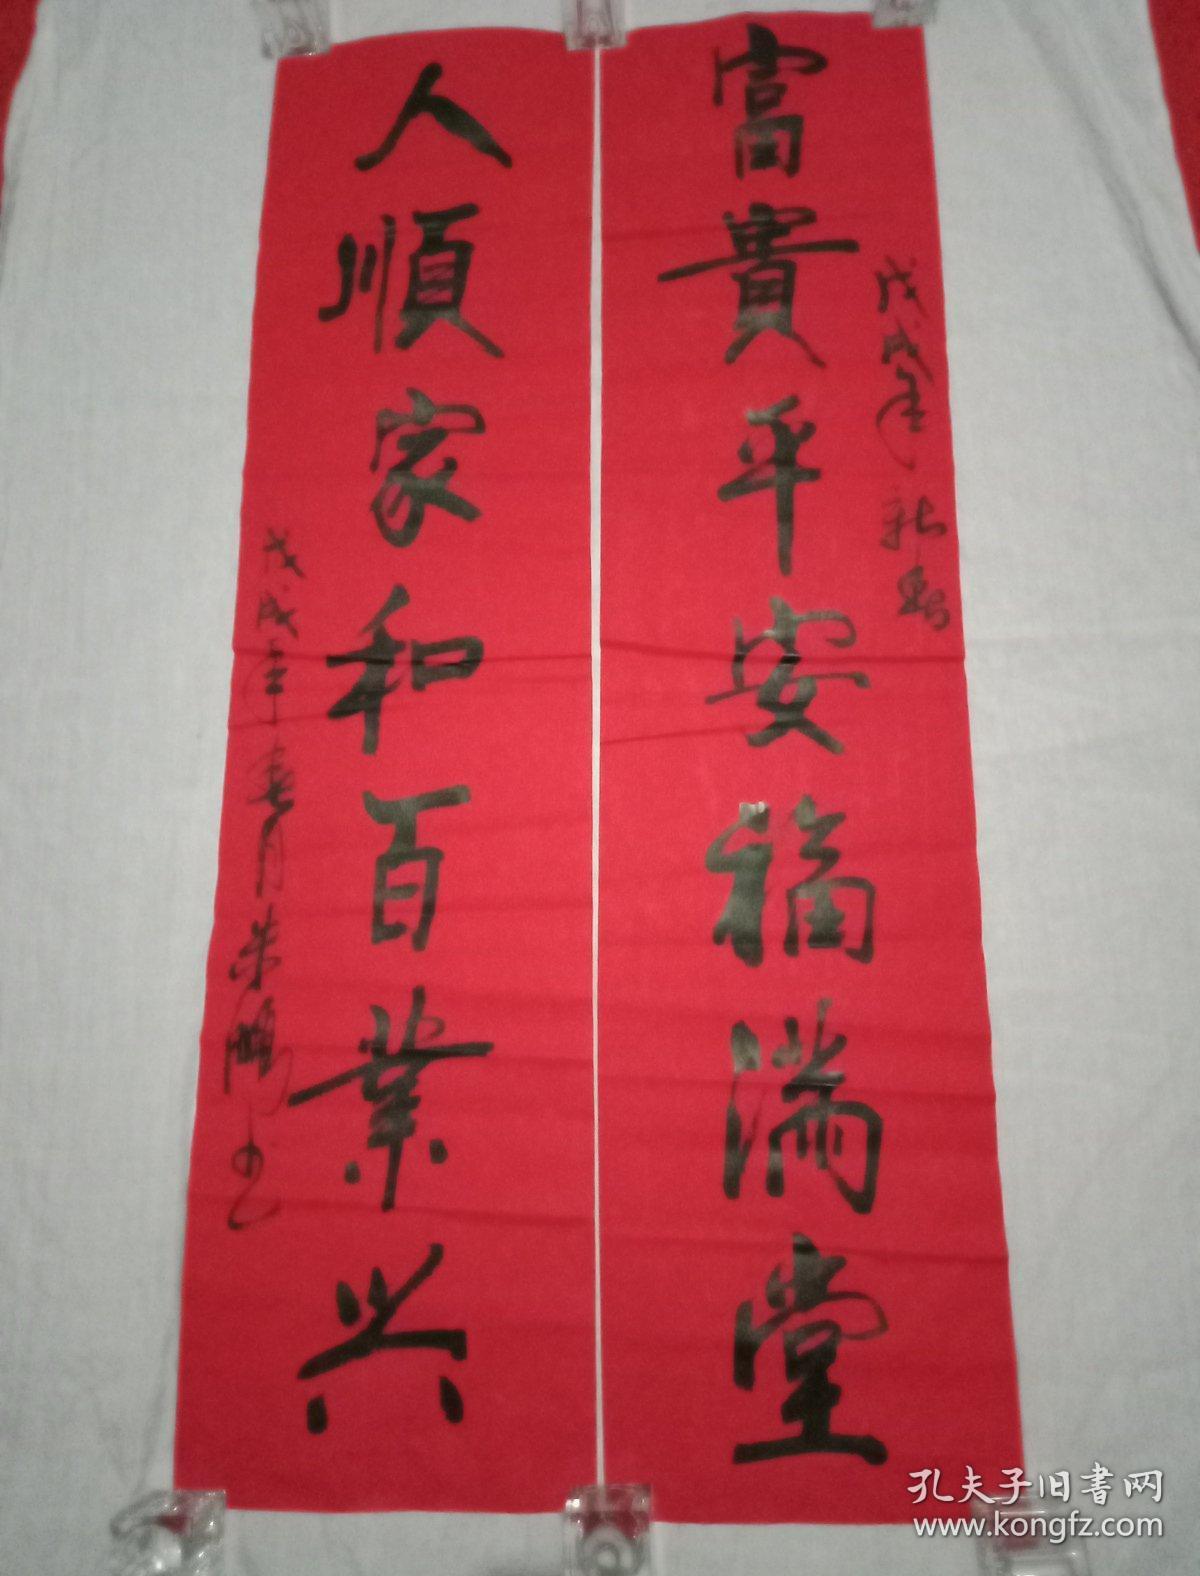 富貴平安福满堂
戊戌年新春
人順家和百業兴
戊戌年春月荣鹏书
孔夫子旧書网
www.kongfz.com